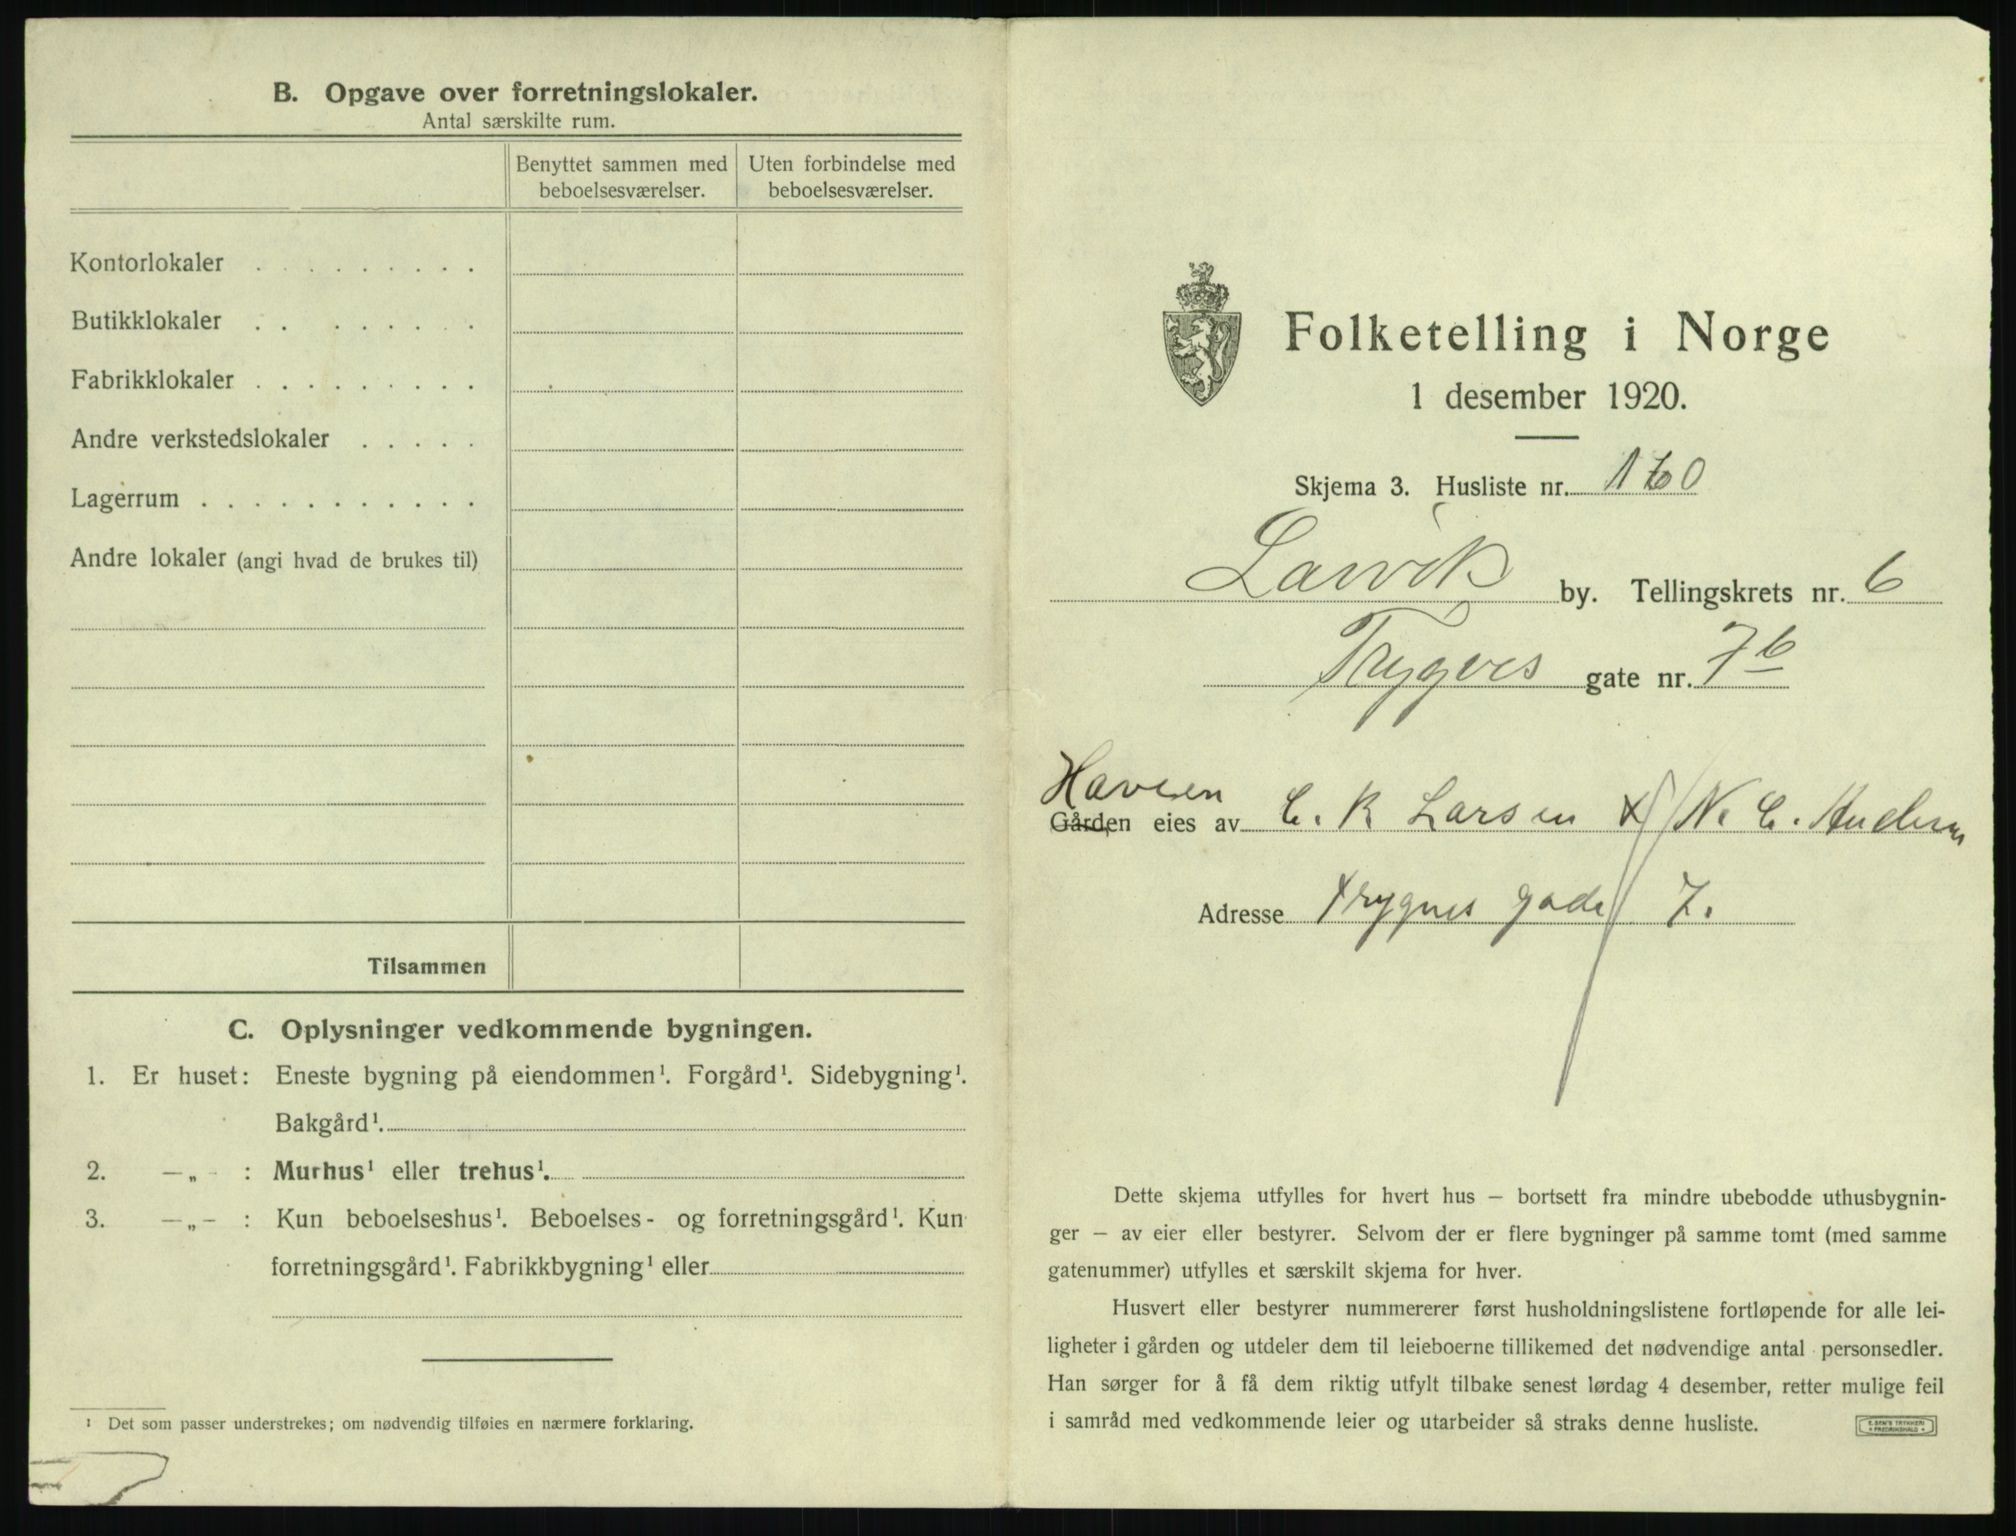 B. Opgave over forretningslokaler.
Antal særskilte rum.
Benyttet sammen med beboelsesværelser.
Uten forbindelse med beboelsesværelser.
Kontorlokaler . . . . . . . . .
Butikklokaler . . . . . . . .
Fabrikklokaler . . . . . . . . .
Andre verkstedslokaler . . . . .
Lagerrum . . . . . . . . . . .
Andre lokaler (angi hvad de brukes til)
Tilsammen
C. Oplysninger vedkommende bygningen.
1. Er huset: Eneste bygning på eiendommen¹. Forgård¹. Sidebygning¹.
Bakgård¹.
2. —„- : Murhus¹ eller trehus¹.
3. —„- : Kun beboelseshus¹. Beboelses- og forretningsgård¹. Kun
forretningsgård¹. Fabrikkbygning¹ eller
¹ Det som passer understrekes; om nødvendig tilføies en nærmere forklaring.
Folketelling i Norge
1 desember 1920.
Skjema 3. Husliste nr. 160
Larvik by. Tellingskrets nr. 6
Trygves gate nr. 7b
Haven
Gården eies av C. R Larsen & N. C. Andersen
Adresse Trygves gade 7.
Dette skjema utfylles for hvert hus — bortsett fra mindre ubebodde uthusbygnin-
ger — av eier eller bestyrer. Selvom der er flere bygninger på samme tomt (med samme
gatenummer) utfylles et særskilt skjema for hver.
Husvert eller bestyrer nummererer først husholdningslistene fortløpende for alle lei-
ligheter i gården og utdeler dem til leieboerne tillikemed det nødvendige antal personsedler.
Han sørger for å få dem riktig utfylt tilbake senest lørdag 4 desember, retter mulige feil
i samråd med vedkommende leier og utarbeider så straks denne husliste.
E. SEM'S TRYKKERI
FREDRIKSHALD